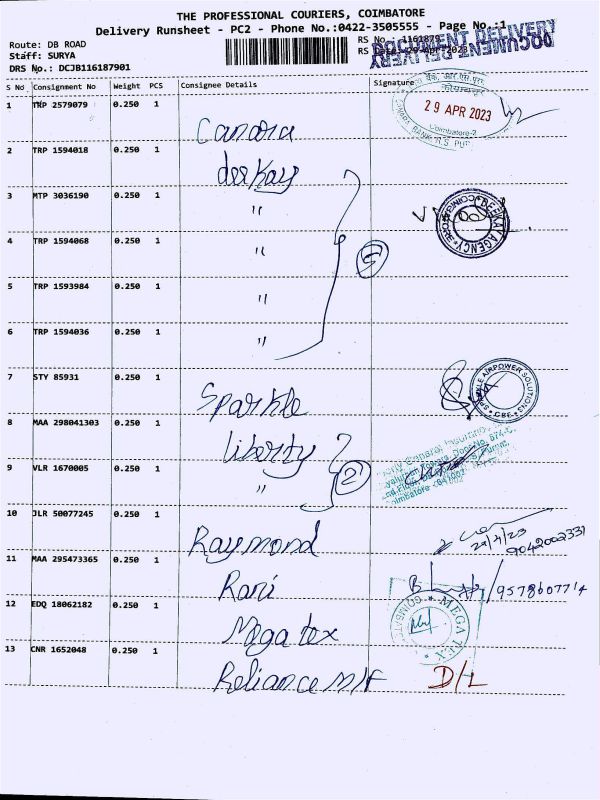 THE PROFESSIONAL COURIERS, COIMBATORE
Delivery Runsheet - PC2 - Phone No.:0422-3505555 - Page No.:1
DOCUMENT DELIVERY
DOCUMENT DELIVERY
Route: DB ROAD
RS No.:
Staff: SURYA
DRS No.: DCJB116187901
S No Consignment No Weight PCS Consignee Details Signature
1 TRP 2579079 0.250 1 Canara
29 APR 2023
Coimbatore-2
2 TRP 1594018 0.250 1 deekay
3 MTP 3036190 0.250 1 "
DEEKAY AGENCY
4 TRP 1594068 0.250 1 "
5
5 TRP 1593984 0.250 1 "
6 TRP 1594036 0.250 1 "
7 STY 85931 0.250 1 Sparkle
SPARKLE AIRPOWER SOLUTIONS
CBE
8 MAA 298041303 0.250 1 liberty
9 VLR 1670005 0.250 1 "
2
10 JLR 50077245 0.250 1 Raymond
29/4/23
9042002331
11 MAA 295473365 0.250 1 Rani
9578607714
12 EDQ 18062182 0.250 1 Mega tex
MEGA TEX
13 CNR 1652048 0.250 1 Reliance m/F D/L